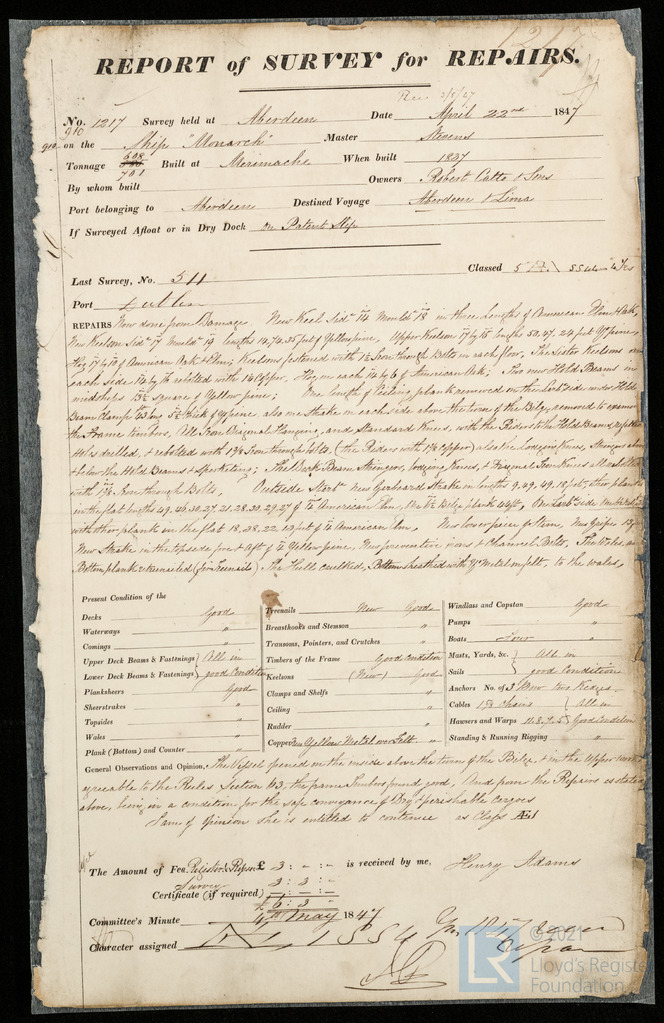 1217
REPORT of SURVEY for REPAIRS.
Rec 3/5/47
No. 1217 Survey held at Aberdeen Date April 22nd 1847
910 on the Ship "Monarch" Master Stevens
Tonnage 701 Built at Merimachi When built 1837
By whom built Owners Robert Catto & Sons
Port belonging to Aberdeen Destined Voyage Aberdeen & Lima
If Surveyed Afloat or in Dry Dock on Patent Slip
Last Survey, No. 511 Classed 5
Port Dublin
REPAIRS Now done from Damage New Keel Sided 14 Mould 18 in three lengths of American Elm & Oak,
New Keelson Sided 17 Mould 19 lengths 14, 74, 35 feet of Yellow pine, Upper Keelson 17 by 15 lengths 50, 47, 24 feet Y pine,
Hog 17 by 10 of American Oak & Elm; Keelsons fastened with 1 3/8 Iron through Bolts in each floor, The Sister Keelsons on
each side 14 by 16 rebolted with 1 1/8 Copper, Hog on each 14 by 6 of American Oak; Two new Hold Beams in
midships 13 1/2 square of Yellow pine; One length of Ceiling plank removed on the Larb side under Hold
Beam Clamps 5 1/2 thick of Y pine, also one Strake on each side above the turn of the Bilge, removed to examine
the frame timbers, All Iron Original Hanging, and Standard Knees, with the Riders to the Hold Beams,
drilled, & rebolted with 1 1/8 Iron through bolts, (the Riders with 1 1/8 Copper) also the Lodging Knees, Stringers above
& below the Hold Beams & Spirketing; The Deck Beam Stringers, lodging Knees, & Diagonal Iron Knees
with 1 1/8 Iron through Bolts, Outside Starbd New Garboard Strake in lengths 9, 49, 49, 18 feet, other planks
in the flat lengths 49, 46, 30, 27, 21, 28, 30, 29, 27 of 4 American Elm, One Bilge plank 44 ft, On Larbd side
with other plank in the flat 18, 38, 22, 19 feet of 4 American Elm, New lower piece of Stem, New Gripe
New Strake in the topside fore & aft of 4 Yellow pine, New preventive irons & Channel Bolts, The Wales, and
Bottom plank retreenailed (for Treenails) The Hull caulked, Bottom Sheathed with Y Metal on felt, to the Wales,
Present Condition of the
Decks Good
Waterways "
Comings "
Upper Deck Beams & Fastenings } All in
Lower Deck Beams & Fastenings } good Condition
Planksheers Good
Sheerstrakes "
Topsides "
Wales "
Plank (Bottom) and Counter "
Treenails New Good
Breasthooks and Stemson "
Transoms, Pointers, and Crutches "
Timbers of the Frame Good Condition
Keelsons (New) Good
Clamps and Shelfs "
Ceiling "
Rudder "
Copper New Yellow Metal over Felt "
Windlass and Capstan Good
Pumps "
Boats Four "
Masts, Yards, &c. } All in
Sails } good Condition
Anchors No. of 3 Bow two Kedges
Cables 1 5/8 Chains } All in
Hawsers and Warps 11.8.7.5 } Good Condition
Standing & Running Rigging "
General Observations and Opinion, The Vessel opened on the inside above the turn of the Bilge, & in the Upper works
agreeable to the Rules Section 63, the frame timbers found good, And from the Repairs as stated
above, being in a condition for the safe conveyance of Dry & perishable cargoes
I am of Opinion She is entitled to continue as Class Æ1
The Amount of Fee, Register & Repair £ 3 : - : - is received by me, Henry Adams
Survey 3 : 3 : -
Certificate (if required) - : - : -
£ 6 : 3 -
Committee's Minute 4th May 1847
Character assigned
© 2021
LR
Lloyd's Register
Foundation